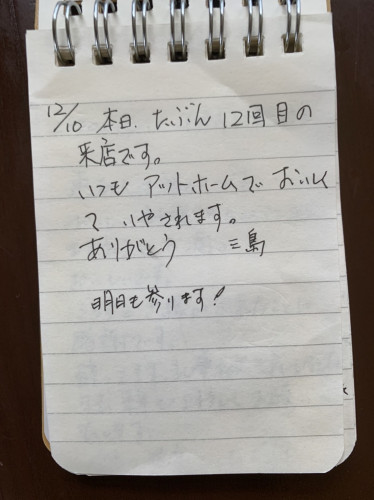 12/10 本日、たぶん12回目の
来店です。
いつもアットホームでおいしく
て いやされます。
ありがとう 三島
明日も参ります!